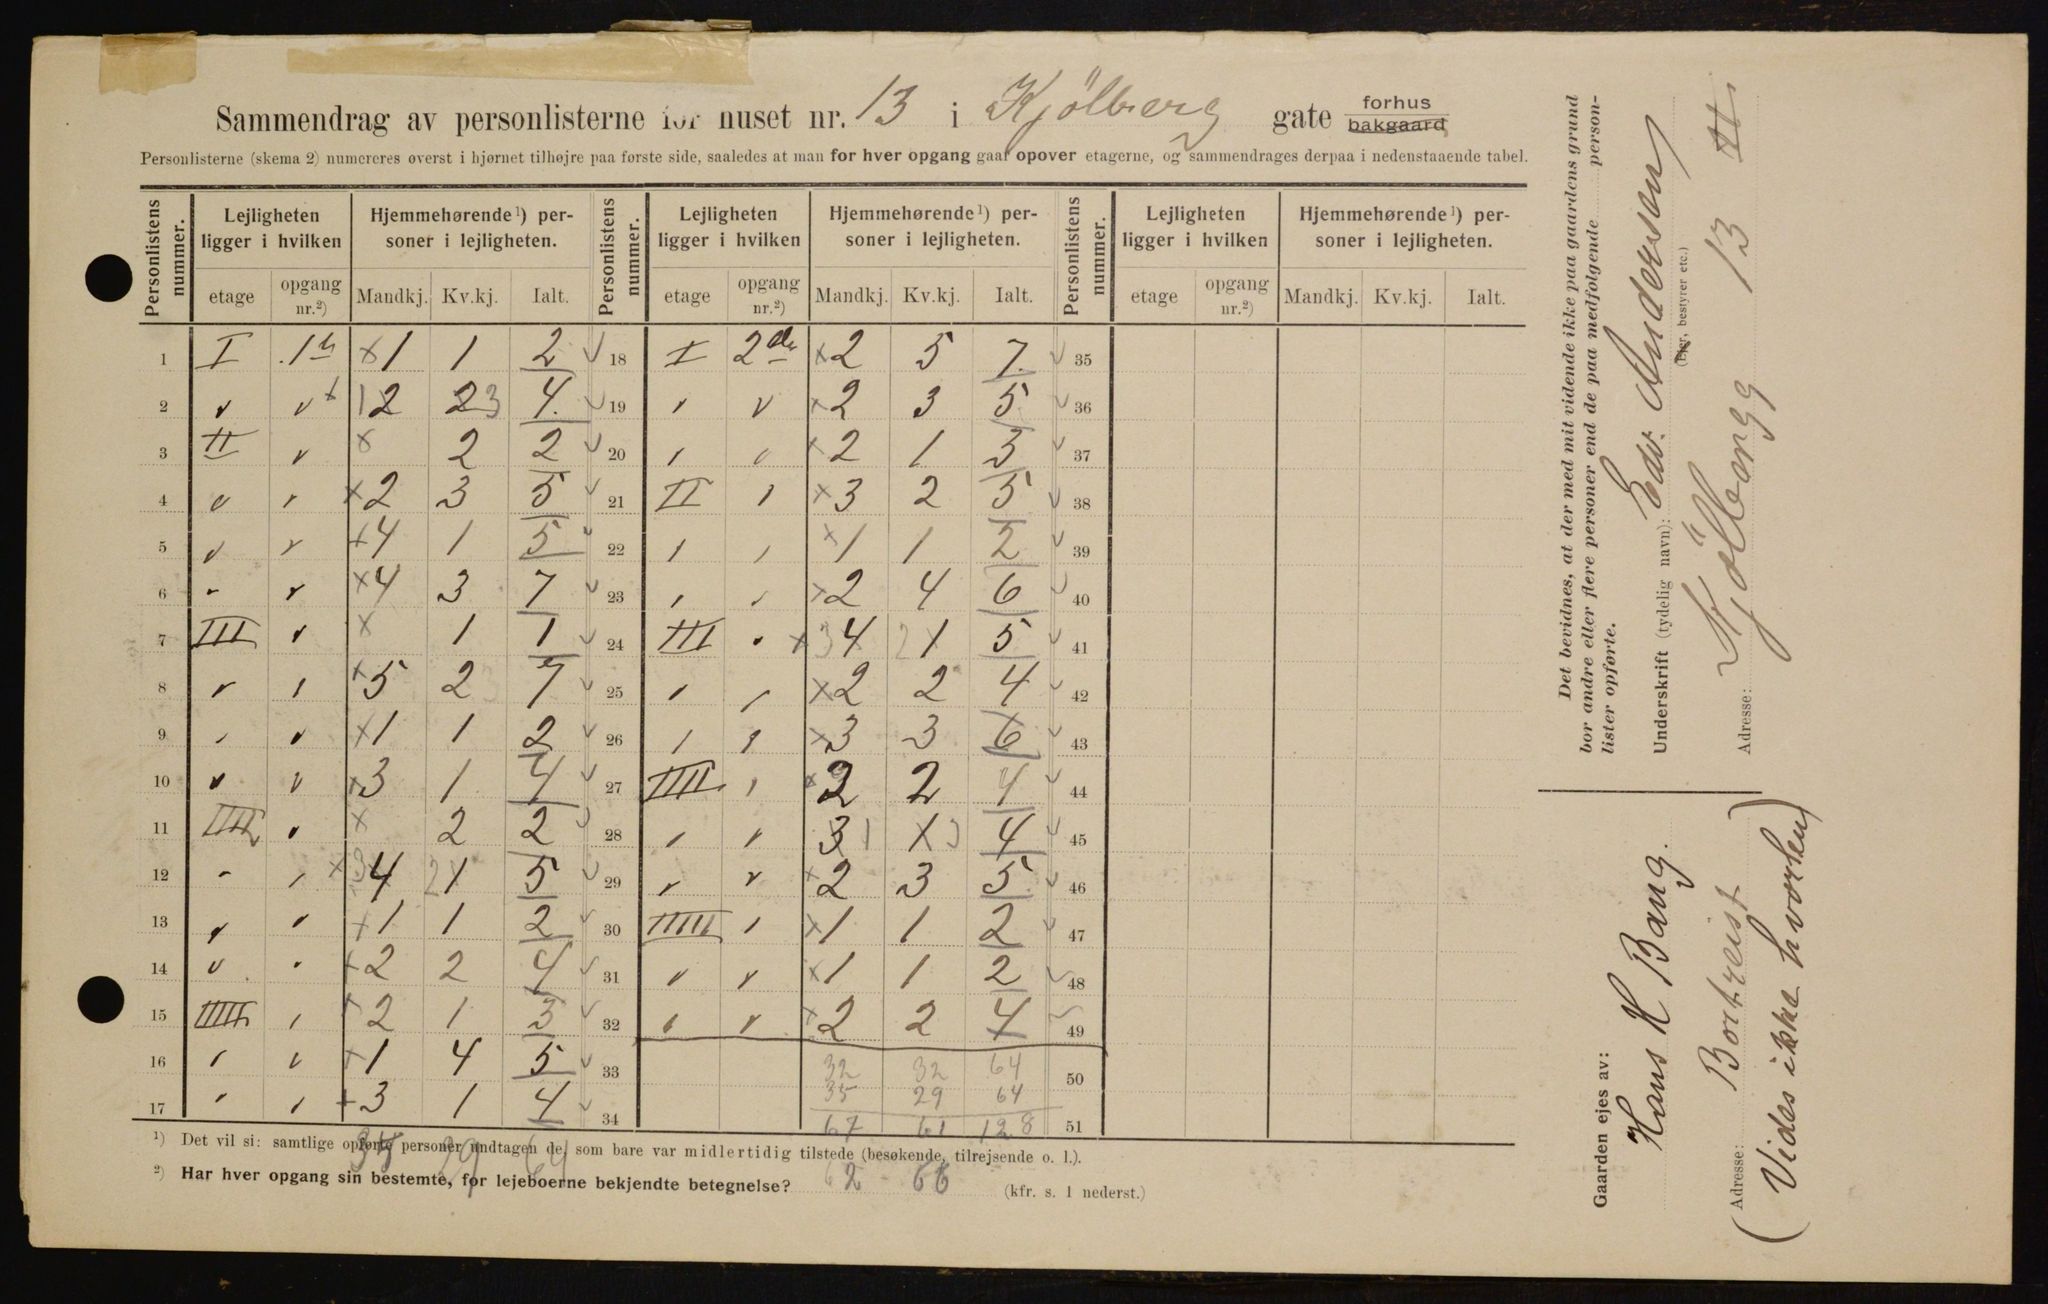 Sammendrag av personlisterne for huset nr. 13 i Kjölberg gate forhus bakgaard
Personlisterne (skema 2) numereres øverst i hjørnet tilhøjre paa første side, saaledes at man for hver opgang gaar opover etagerne, og sammendrages derpaa i nedenstaaende tabel.
Personlistens nummer. Lejligheten ligger i hvilken Hjemmehørende ¹) personer i lejligheten. Personlistens nummer. Lejligheten ligger i hvilken Hjemmehørende ¹) personer i lejligheten. Personlistens nummer. Lejligheten ligger i hvilken Hjemmehørende ¹) personer i lejligheten.
etage opgang nr.²) Mandkj. Kv.kj. Ialt. etage opgang nr.²) Mandkj. Kv.kj. Ialt. etage opgang nr.²) Mandkj. Kv.kj. Ialt.
1 I 1ste x 1 1 2 18 I 2den x 2 5 7 35
2 " " 1 2 2 3 4 19 " " x 2 3 5 36
3 II " x 2 2 20 " " x 2 1 3 37
4 " " x 2 3 5 21 II " x 3 2 5 38
5 " " x 4 1 5 22 " " x 1 1 2 39
6 " " x 4 3 7 23 " " x 2 4 6 40
7 III " x 1 1 24 III " x 3 4 2 1 5 41
8 " " x 5 2 7 25 " " x 2 2 4 42
9 " " x 1 1 2 26 " " x 3 3 6 43
10 " " x 3 1 4 27 IIII " x 2 2 4 44
11 IIII " x 2 2 28 " " 3 1 1 3 4 45
12 " " x 3 4 2 1 5 29 " " x 2 3 5 46
13 " " x 1 1 2 30 IIIII " x 1 1 2 47
14 " " x 2 2 4 31 " " x 1 1 2 48
15 IIIII " x 2 1 3 32 " " x 2 2 4 49
16 " " x 1 4 5 33 32 32 64 50
35 29 64
17 " " x 3 1 4 34 67 61 128 51
¹) Det vil si: samtlige opførte personer undtagen de, som bare var midlertidig tilstede (besøkende, tilrejsende o. l.).
29 64
²) Har hver opgang sin bestemte, for lejeboerne bekjendte betegnelse? 62 66 (kfr. s. 1 nederst.)
Det bevidnes, at der med mit vidende ikke paa gaardens grund
bor andre eller flere personer end de paa medfølgende person-
lister opførte.
Underskrift (tydelig navn): Edv. Andersen
(Ejer, bestyrer etc.)
Adresse: Kjölbergg 13
Gaarden ejes av:
Hans H Bang.
Adresse: Bortreist
(Vides ikke hvorhen)